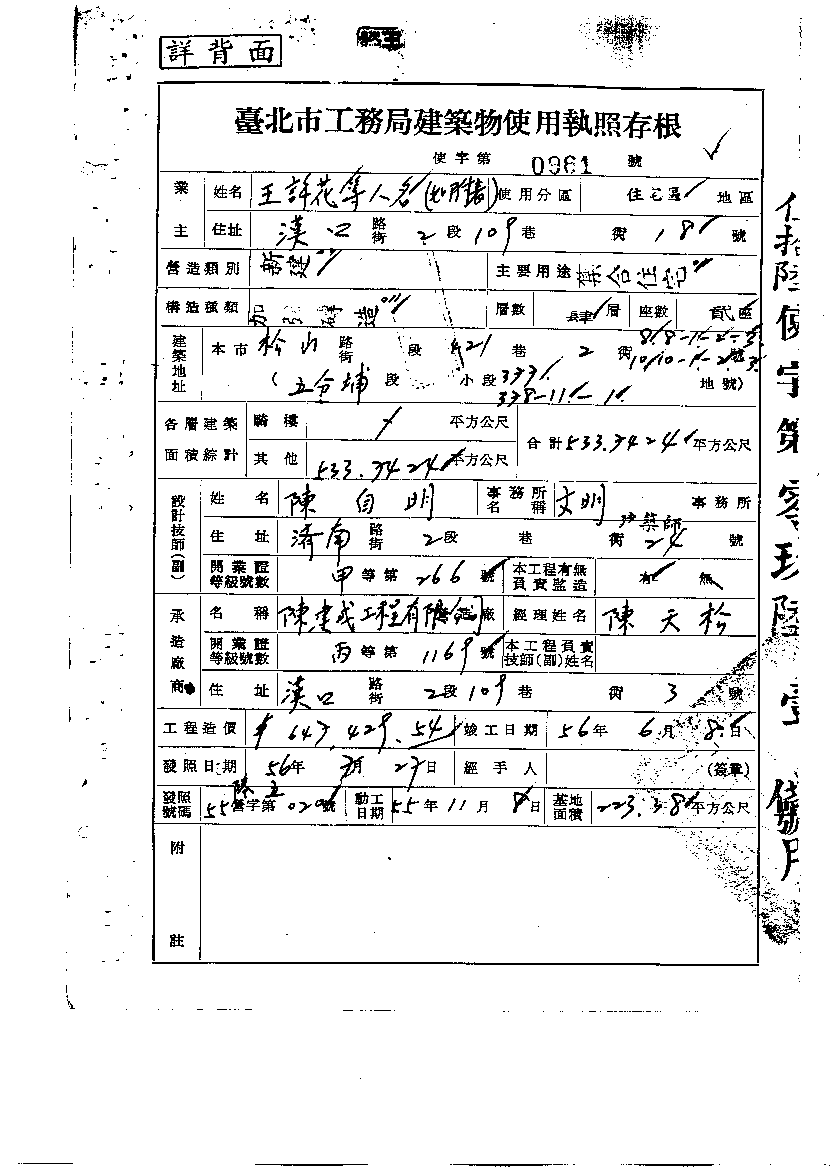 詳背面
臺北市工務局建築物使用執照存根
使字第 0961 號
業主 姓名 王許花等人名 使用分區 住宅區 地區
住址 漢口 路街 2段109巷 街 18 號
營造類別 新建 主要用途 集合住宅
構造種類 加 磚造 層數 肆層 座數 貳座
建築地址 本市 松山 路街 段 421 巷 2 街 號
(五分埔 段 小段 337 地號)
338-11-1
各層建築面積綜計 騎樓 平方公尺 合計 533.3424 平方公尺
其他 533.3424 平方公尺
設計技師(副) 姓名 陳自明 事務所名稱 文明建築師 事務所
住址 濟南 路街 2段 巷 街 24 號
開業證等級號數 甲等第 266 號 本工程有無負責監造 有 無
承造廠商 名稱 陳建成工程有限公司 造廠 經理姓名 陳天松
開業證等級號數 丙等第 1169 號 本工程負責技師(副)姓名
住址 漢口 路街 2段109巷 街 3 號
工程造價 $647,429.54 竣工日期 56年6月8日
發照日期 56年7月27日 經手人 (簽章)
發照號碼 55 營字第 020 號 動工日期 55年11月8日 基地面積 223.38 平方公尺
附註
伍拾陸使字第零玖陸壹號